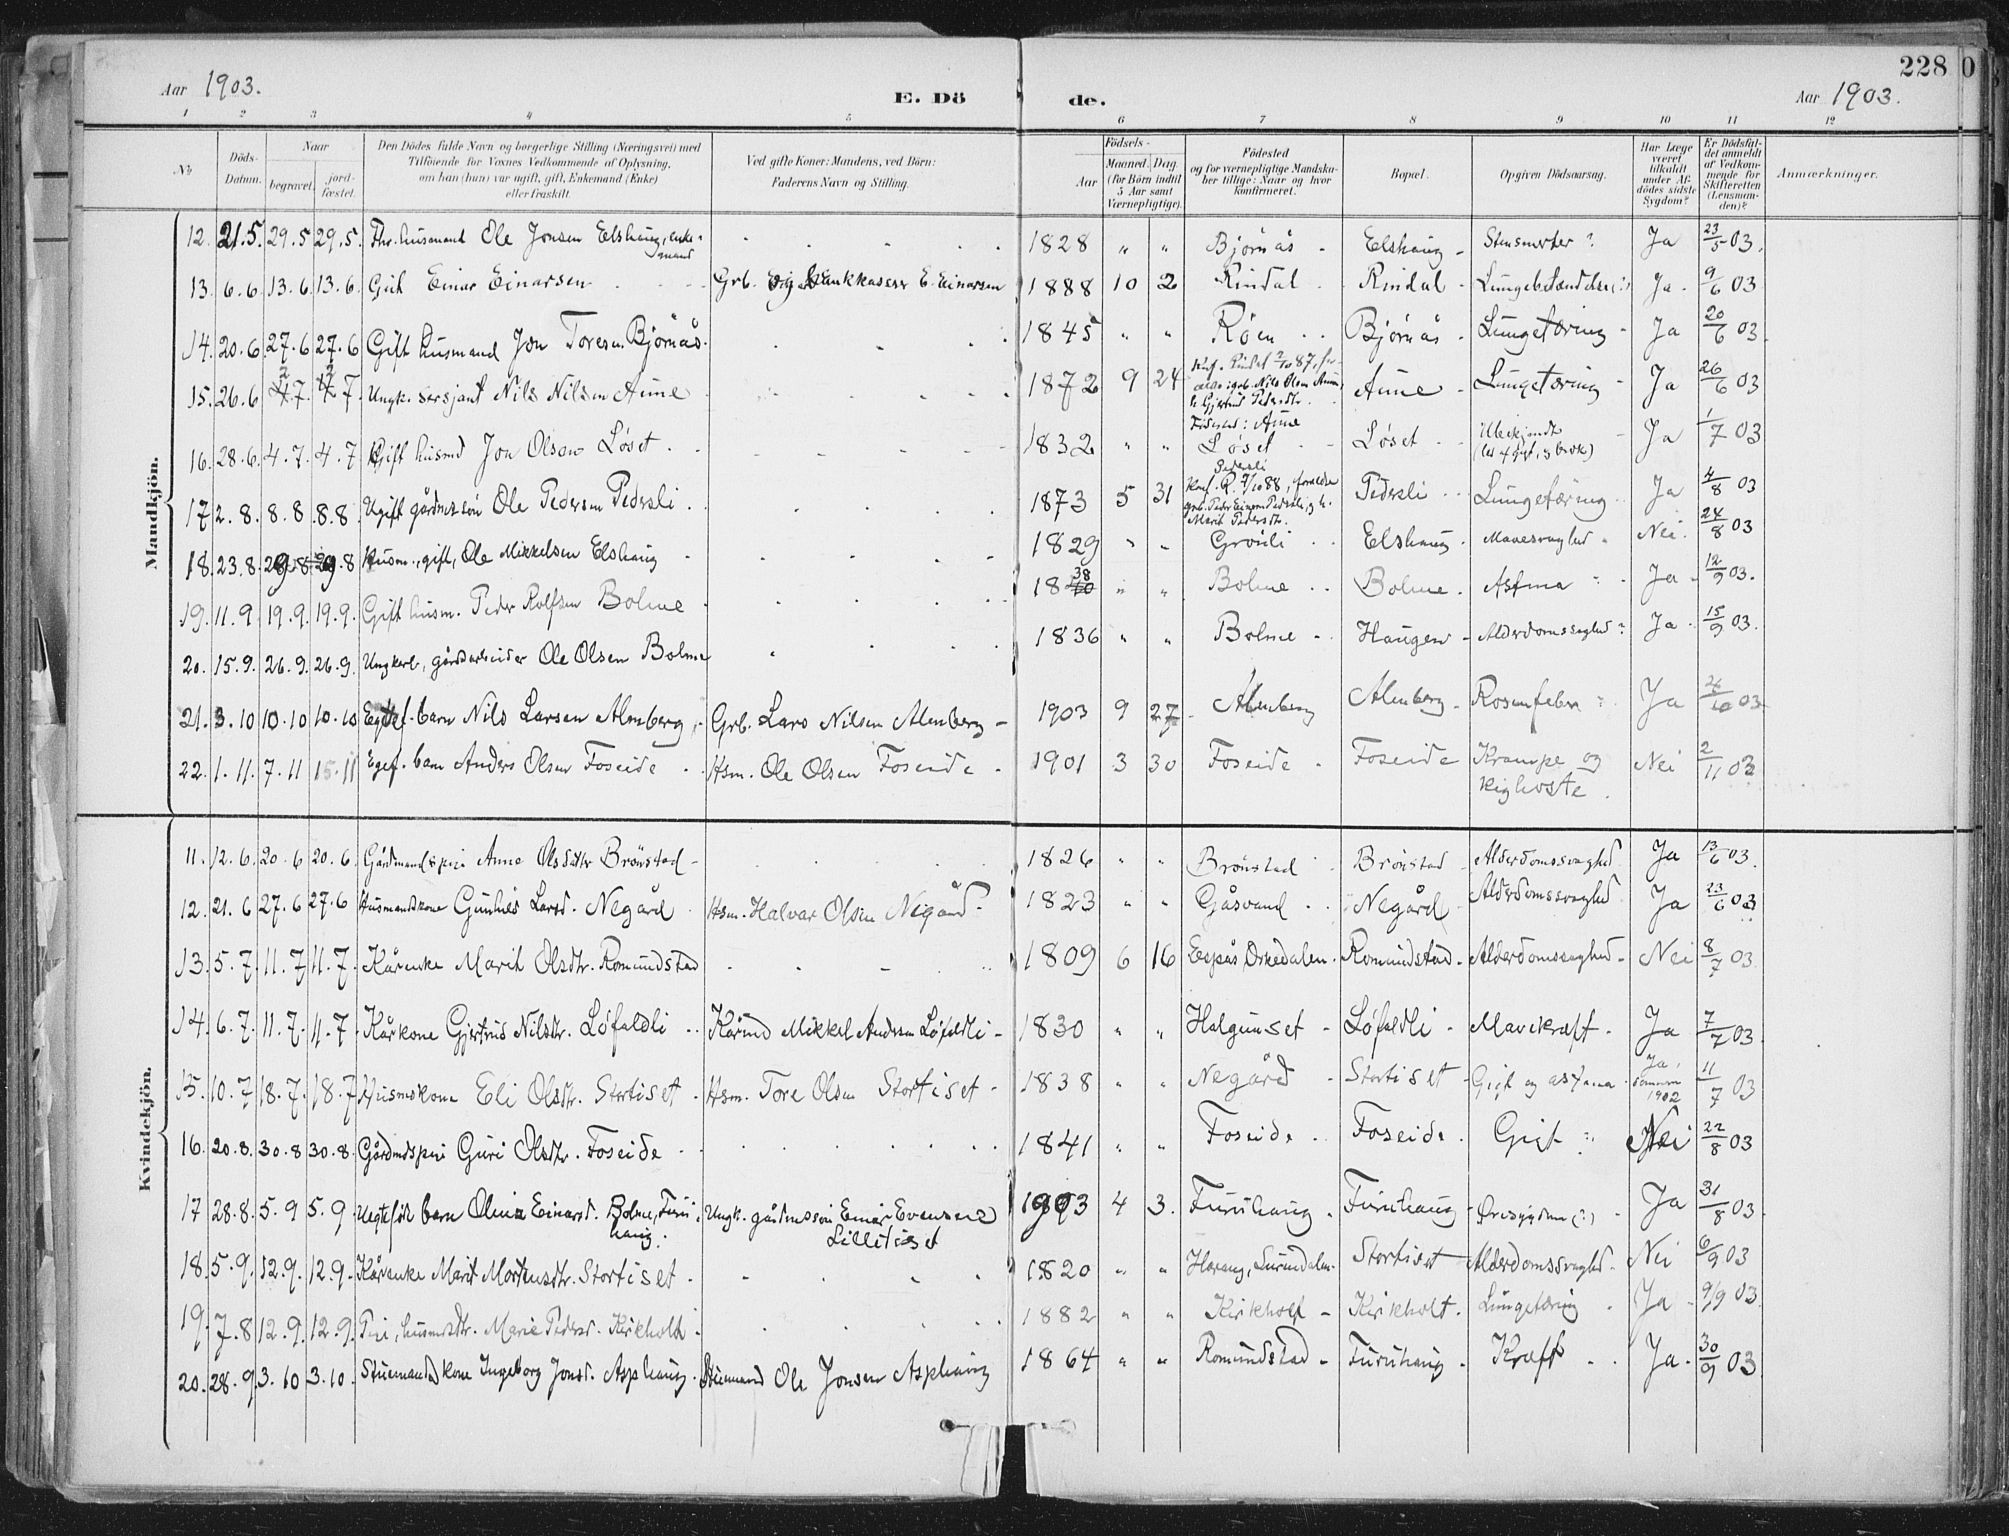 228
0
Aar 1903.
E. Dö
de.
Aar 1903.
1 2 3 4 5 6 7 8 9 10 11 12
No
Döds-Datum.
Naar
begravet.
jord-fæstet.
Den Dödes fulde Navn og borgerlige Stilling (Næringsvei) med
Tilföiende for Voxnes Vedkommende af Oplysning,
om han (hun) var ugift, gift, Enkemand (Enke)
eller fraskilt.
Ved gifte Koner: Mandens, ved Börn:
Faderens Navn og Stilling.
Födsels-
Aar
Maaned. Dag.
(for Börn indtil
5 Aar samt
Værnepligtige).
Födested
og for værnepligtige Mandskaber tillige: Naar og hvor
konfirmeret.
Bopæl.
Opgiven Dödsaarsag.
Har Læge
været
tilkaldt
under Afdödes sidste
Sygdom?
Er Dödsfaldet anmeldt
af Vedkommende for
Skifteretten
(Lensmanden)?
Anmærkninger.
Mandkjön.
12. 21.5. 29.5 29.5. husmand Ole Jonsen Elshaug, enkemand 1828 " " Bjørnås Elshaug Ja 23/5 03.
13. 6.6. 13.6. 13.6. Gut Einar Einarsen Grb. E. Einarsen 1888 10 2 Rindal Rindal Ja 9/6 03
14. 20.6. 27.6 27.6 Gift husmand Jon Toresen Bjørnås 1845 " " Røen Bjørnås Lungetæring Ja 20/6 03.
15. 26.6 4.7. 4.7. Ungk. sersjant Nils Nilsen Aune 1872 9 24 Aune Lungetæring Ja 26/6 03
Fødested: Aune
16. 28.6. 4.7. 4.7 Gift husmd Jon Olsen Løset 1832 " " Løset Løset Ubekjendt Ja 1/7 03
17 2.8. 8.8 8.8. Ugift gårdmssøn Ole Pedersen Pedersli 1873 5 31 Pedersli Lungetæring Ja 4/8 03
18. 23.8. 29.8 29.8 Husm., gift, Ole Mikkelsen Elshaug 1829 " " Grønli Elshaug Mavesvaghed Nei 24/8 03
19. 11.9. 19.9. 19.9. Gift husm. Peder Rolfsen Bolme 1838 " " Bolme Bolme Astma Ja 12/9 03.
20. 15.9. 26.9. 26.9. Ungkarl, gårdsarbeider Ole Olsen Bolme 1836 " " Bolme Haugen Ja 15/9 03.
21. 3.10 10.10 10.10 Egtef. barn Nils Larsen Almberg Grb. Lars Nilsen Almberg 1903 9 27 Almberg Almberg Rosenfeber Ja 03
22. 1.11. 7.11 15.11 Egef. barn Anders Olsen Foseide Hsm. Ole Olsen Foseide 1901 3 30 Foseide Foseide Krampe og
kighoste Nei 2/11 03
Kvindekjön.
11. 12.6. 20.6 20.6. Gårdmandspi Anne Olsdatter Brønstad 1826 " " Brønstad Brønstad Alderdomssvaghed Ja 13/6 03.
12. 21.6 27.6 27.6 Husmandskone Gunhild Larsd. Negård Hsm. Halvar Olsen Negård 1823 " " Gåsvand Negård Alderdomssvaghed Ja 23/6 03
13. 5.7. 11.7 11.7. Kårenke Marit Olsdtr. Romundstad 1809 6 16 Espås Orkedalen Romundstad Alderdomssvaghed Nei 8/7 03
14. 6.7. 11.7. 11.7 Kårkone Gjertrud Nilsdtr. Løfaldli Kårmd Mikkel Andersen Løfaldli 1830 " " Halgunset Løfaldli Mavekræft Ja 7/7 03
15. 10.7 18.7. 18.7 Husmskone Eli Olsdtr. Stortiset Hsm. Tore Olsen Stortiset 1838 " " Negård Stortiset Gigt og astma Ja, sommeren 1902 11/7 03
16. 20.8. 30.8 30.8. Gårdmdspi Guri Olsdtr. Foseide 1841 " " Foseide Foseide Gigt Nei 22/8 03
17 28.8. 5.9 5.9 Uegtefødt barn Olina Einarsd. Bolme, Furuhaug. Ungk. gårdmssøn Einar Evensen
Lillitiset 1903 4 3. Furuhaug Furuhaug Øresygdom (?) Ja 31/8 03
18. 5.9. 12.9. 12.9. Kårenke Marit Mortensdtr. Stortiset 1820 " " Harang, Surendalen Stortiset Alderdomssvaghed Nei 6/9 03
19. 7.8 12.9. 12.9. Pi, husmdsdtr. Marie Pedersd. Kirkholt 1882 " " Kirkholt Kirkholt. Lungetæring Ja 9/9 03
20. 28.9 3.10 3.10. Stuemandskone Ingeborg Jonsd. Asphaug Stuemand Ole Jonsen Asphaug 1864 " " Romundstad Furuhaug Kræft Ja 30/9 03